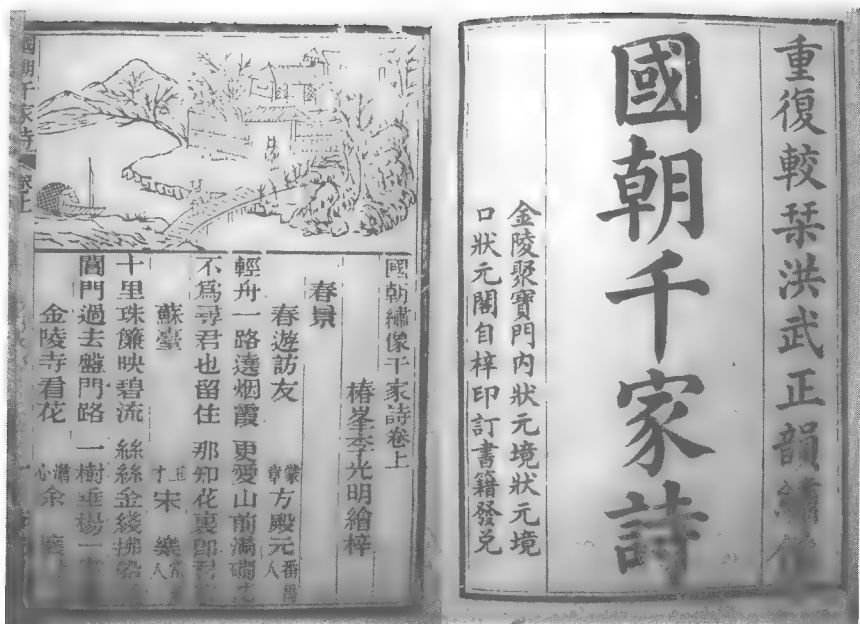 重復較栞洪武正韻
國朝千家詩
金陵聚寶門内狀元境狀元境
口狀元閣自梓印訂書籍發兌
國朝繡像千家詩卷上
椿峯李光明繪梓
春景
春遊訪友 蒙章 方殿元 番禺人
輕舟一路遶烟霞 更愛山前滿磵
不爲尋君也留住 那知花裏卽君
蘇臺 宋樂
十里珠簾映碧流 絲絲金綫拂船
閶門過去盤門路 一樹垂楊一
金陵寺看花 澹心 余懷
國朝千家詩 卷上